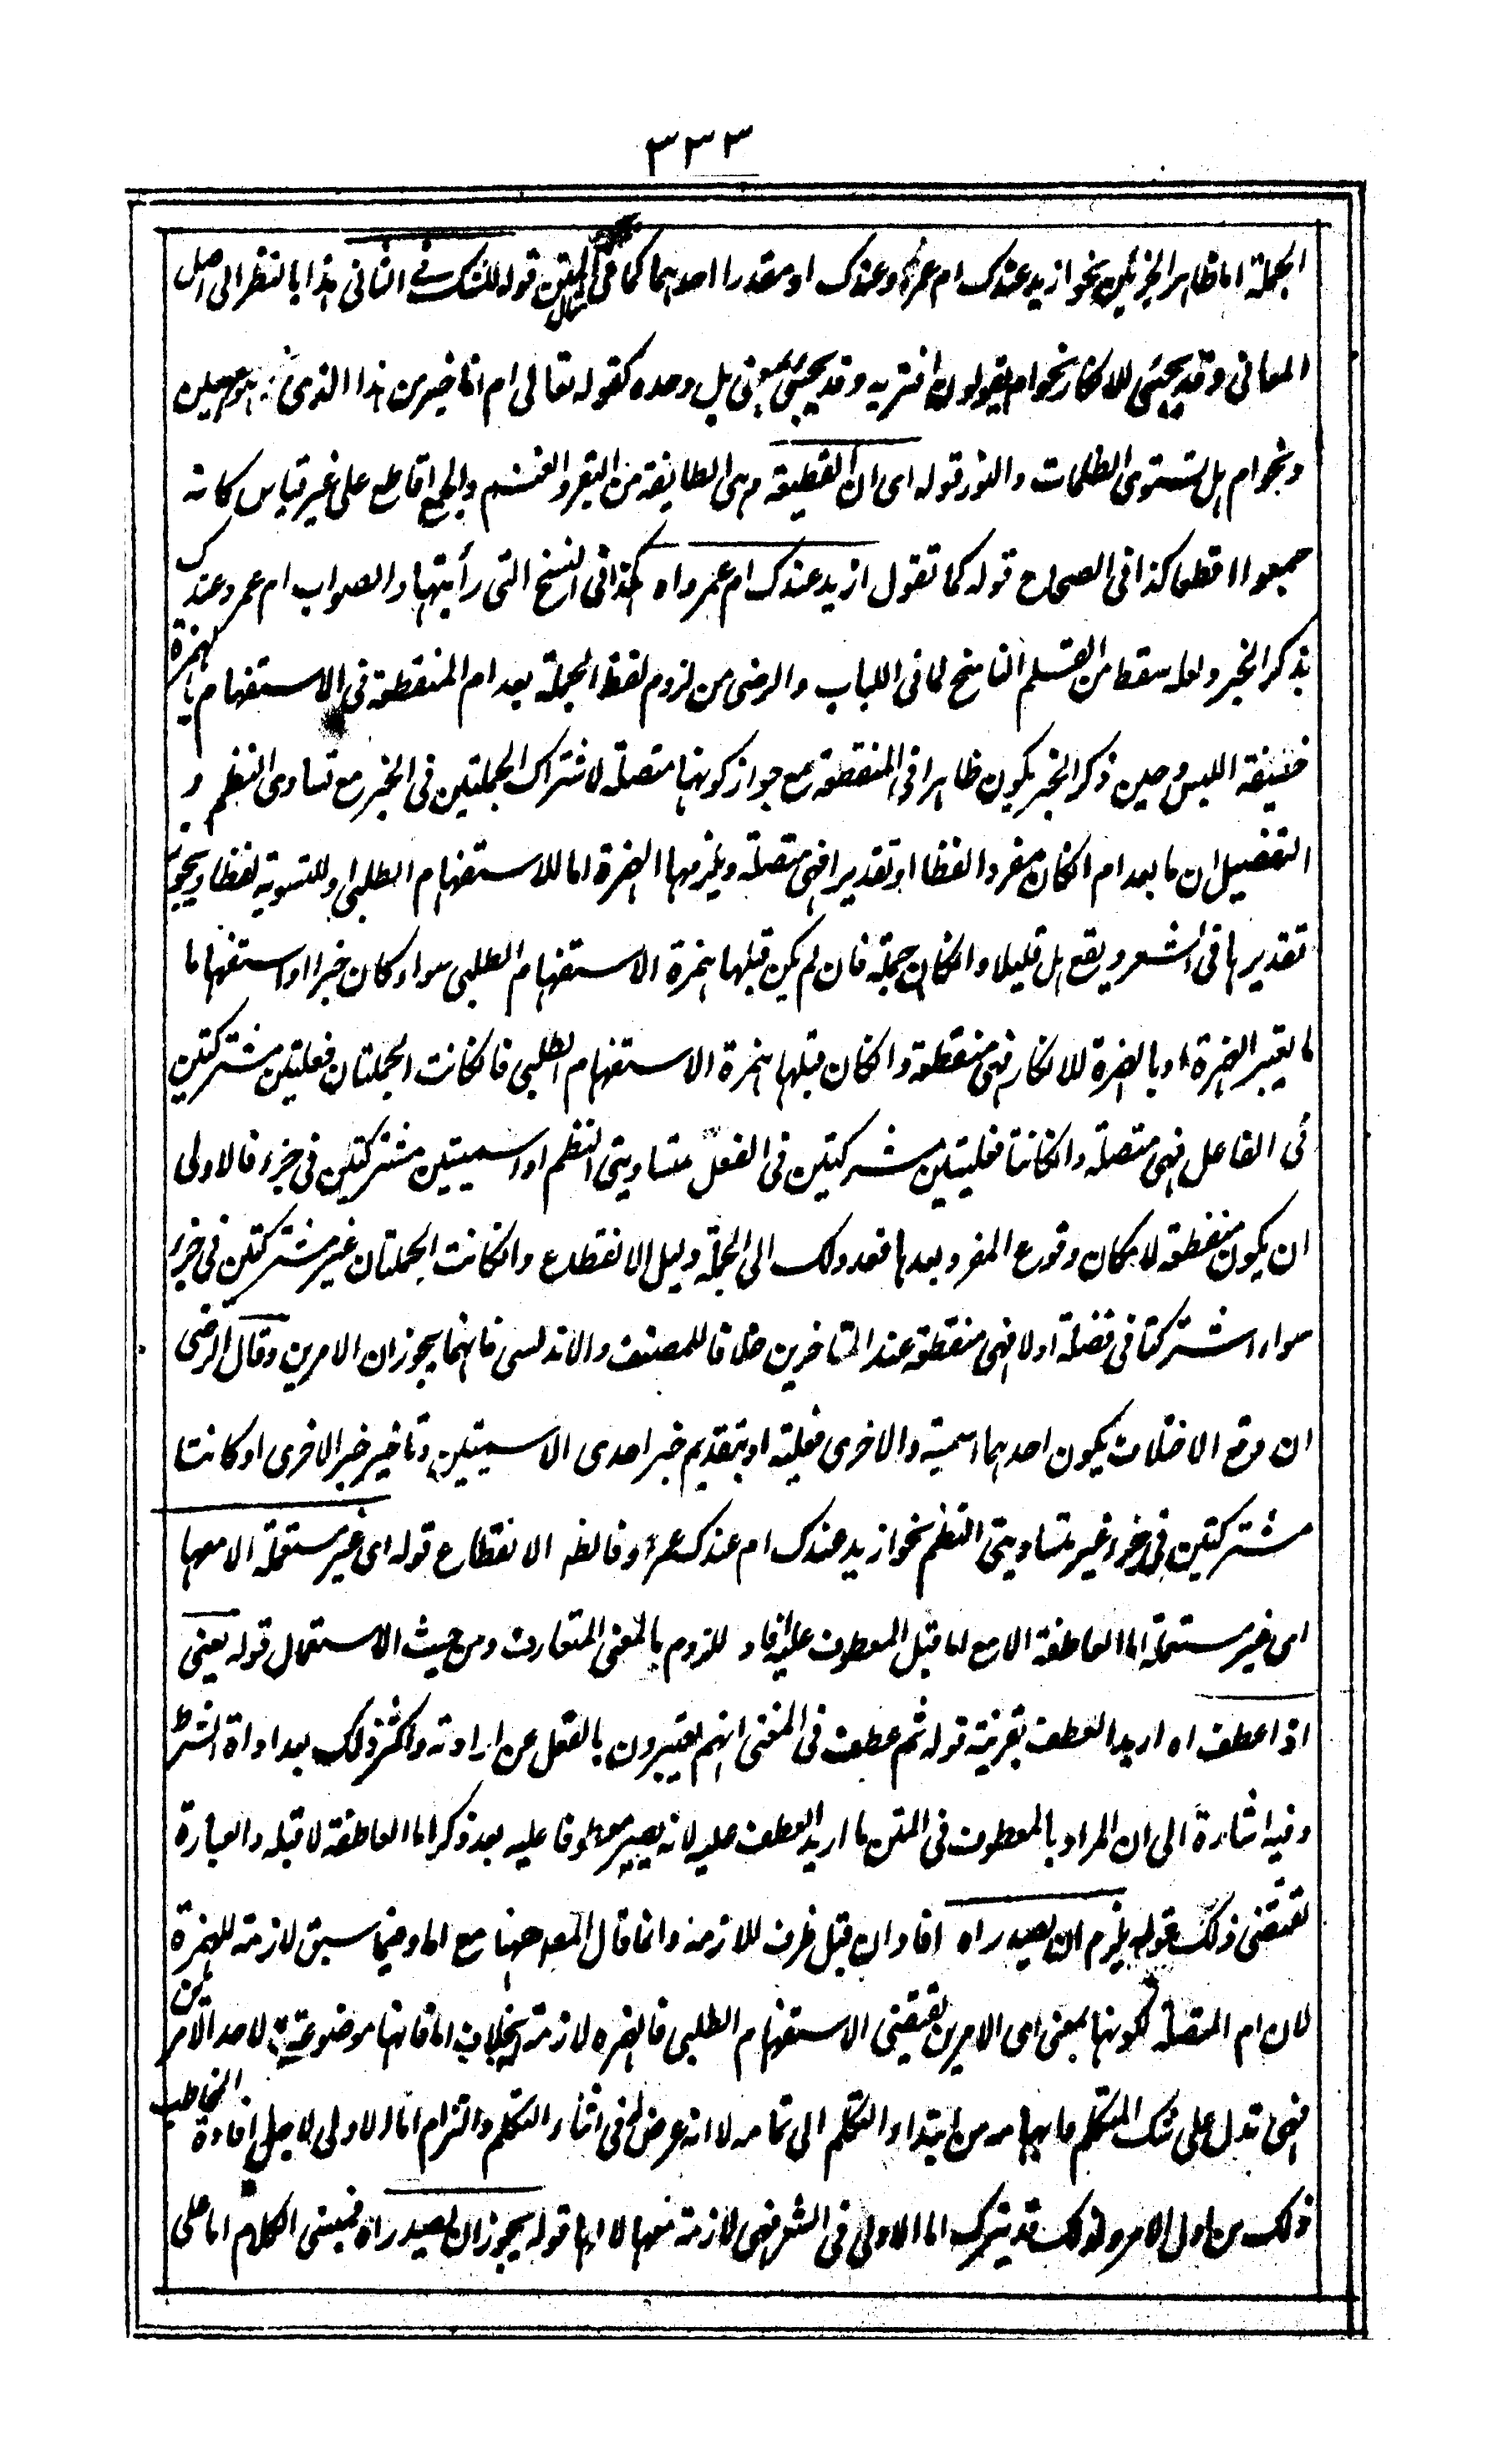 ٣٣٣
الجملة اما ظاهر الجزئين نحو ازيد عندك ام عمرو عندك او مقدرا احدهما كما فى المتن قوله للشك فى الثانى هذا بالنظر الى اصل
المعانى وقد يجئ للانكار نحو ام يقولون افتريه وقد يجئ بمعنى بل وحده كقوله تعالى ام انا خير من هذا الذى هو مهين
ونحو ام هل تستوى الظلمات والنور قوله اى ان القطيعة وهى الطايفة من البقر والغنم والجمع اقاطع على غير قياس كانه
جمعوا اقطعا كذا فى الصحاح قوله كما تقول ازيد عندك ام عمرو اه كذا فى النسخ التى رأيتها والصواب ام عمرو عندك
بذكر الخبر ولعله سقط من القلم الناسخ لما فى اللباب والرضى من لزوم لفظ الجملة بعد ام المنقطعة فى الاستفهام بالهمزة
خفيفة اللبس وحين ذكر الخبر يكون ظاهرا فى المنقطعة مع جواز كونها متصلة لاشتراك الجملتين فى الخبر مع تساوى النظم و
التفصيل ان ما بعد ام انكان مفردا لفظا او تقديرا فهى متصلة ويلزمها الهمزة اما للاستفهام الطلبى او للتسوية لفظا ويجوز
تقديرها فى الشعر ويقع هل قليلا وانكان جملة فان لم يكن قبلها همزة الاستفهام الطلبى سواء كان خبرا او استفهاما
لا بغير الهمزة او بالهمزة للانكار فهى منقطعة وانكان قبلها همزة الاستفهام الطلبى فانكانت الجملتان فعليتين مشتركتين
فى الفاعل فهى متصلة وانكانتا فعليتين مشتركتين فى الفعل متساويتى النظم او اسميتين مشتركتين فى جزء فالاولى
ان يكون منقطعة لامكان وقوع المفرد بعدها فعدولك الى الجملة دليل الانقطاع وانكانت الجملتان غير مشتركتين فى جزء
سواء اشتركتا فى فضلة اولا فهى منقطعة عند المتاخرين خلافا للمصنف والاندلسى فانهما يجوزان الامرين وقال الرضى
ان وقع الاختلاف بكون احدهما اسمية والاخرى فعلية او بتقديم خبر احدى الاسميتين وتاخير خبر الاخرى او كانتا
مشتركتين فى جزء غير متساويتى النظم نحو ازيد عندك ام عندك عمرو فالظ الانقطاع قوله اى غير مستعملة الا معها
اى غير مستعملة اما العاطفة الا مع اما قبل المعطوف عليه افاد للزوم بالمعنى المتعارف ومن حيث الاستعمال قوله يعنى
اذا عطف اه اريد العطف بقرينة قوله ثم عطف فى المغنى انهم يعبرون بالفعل عن ارادته واكثر ذلك بعد اداة الشرط
وفيه اشارة الى ان المراد بالمعطوف فى المتن ما اريد العطف عليه لانه يصير معطوفا عليه بعد ذكر اما العاطفة لا قبله والعبارة
تقتضى ذلك قوله يلزم ان يصدر اه افاد ان قبل ظرف للازمة وانما قال المص ههنا مع اما وفيما سبق لازمة للهمزة
لان ام المتصلة لكونها بمعنى اى الامرين تقتضى الاستفهام الطلبى فالهمزه لازمة بخلاف اما فانها موضوعة لاحد الامرين
فهى تدل على شك المتكلم من ابتداء التكلم الى تمامه لا انه عرض له فى اثناء التكلم والتزام اما الاولى لاجل افادة المخاطب
ذلك من اول الامر ولذلك قد يترك اما الاولى فى الشعر فهى لازمة معها لا لها قوله يجوز ان يصدر اه فيبنى الكلام اما على